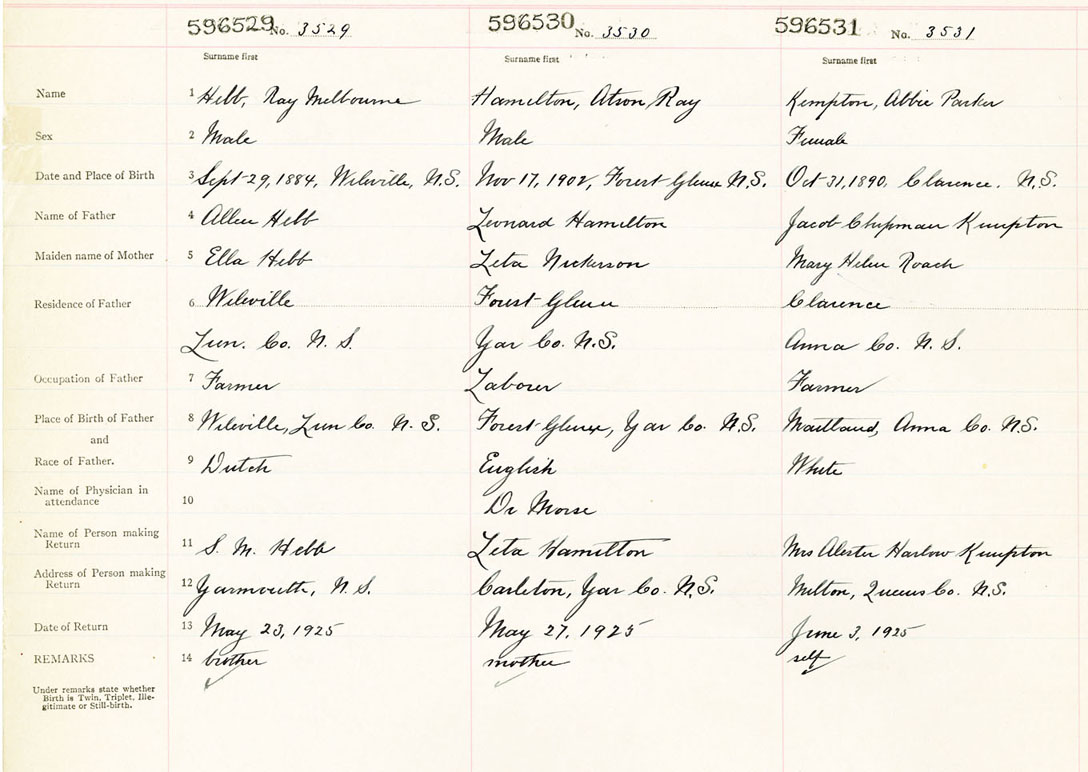 596529 No. 3529 596530 No. 3530 596531 No. 3531
Surname first Surname first Surname first
Name 1 Hebb, Ray Melbourne Hamilton, Atson Ray Kempton, Abbie Parker
Sex 2 Male Male Female
Date and Place of Birth 3 Sept 29, 1884, Wileville, N.S. Nov 17, 1902, Forest Glenn N.S. Oct 31, 1890, Clarence, N.S.
Name of Father 4 Allen Hebb Leonard Hamilton Jacob Chipman Kempton
Maiden name of Mother 5 Ella Hebb Leta Nickerson Mary Helen Roach
Residence of Father 6 Wileville Forest Glenn Clarence
Lun. Co. N. S. Yar Co. N.S. Anna Co. N. S.
Occupation of Father 7 Farmer Laborer Farmer
Place of Birth of Father 8 Wileville, Lun Co. N. S. Forest Glenn, Yar Co. N.S. Maitland, Anna Co. N.S.
and
Race of Father. 9 Dutch English White
Name of Physician in
attendance 10 Dr Morse
Name of Person making
Return 11 S. M. Hebb Leta Hamilton Mrs Alester Harlow Kempton
Address of Person making
Return 12 Yarmouth, N. S. Carleton, Yar Co. N.S. Milton, Queens Co. N.S.
Date of Return 13 May 23, 1925 May 27, 1925 June 3, 1925
REMARKS 14 brother mother self
Under remarks state whether
Birth is Twin, Triplet, Ille-
gitimate or Still-birth.